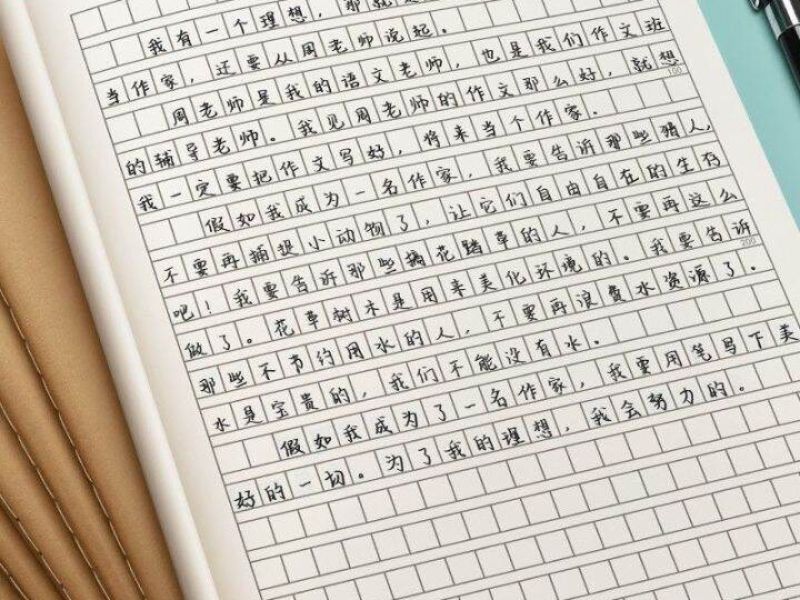 我有一个理想，那就是
当作家，还要从周老师说起。
周老师是我的语文老师，也是我们作文班
100
的辅导老师。我见周老师的作文那么好，就想
我一定要把作文写好，将来当个作家。
假如我成为一名作家，我要告诉那些猎人，
不要再捕捉小动物了，让它们自由自在的生存
吧！我要告诉那些摘花踏草的人，不要再这么
200
做了。花草树木是用来美化环境的。我要告诉
那些不节约用水的人，不要再浪费水资源了。
水是宝贵的，我们不能没有水。
假如我成为了一名作家，我要用笔写下美
好的一切。为了我的理想，我会努力的。